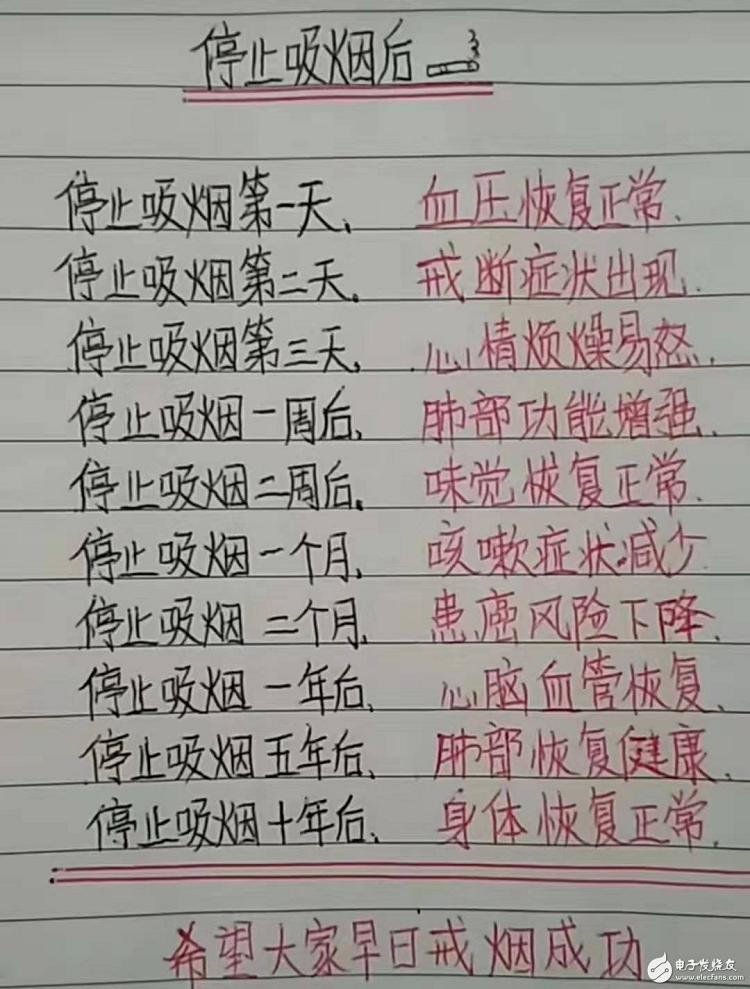 停止吸烟后
停止吸烟第一天、血压恢复正常.
停止吸烟第二天. 戒断症状出现.
停止吸烟第三天, 心情烦燥易怒.
停止吸烟一周后, 肺部功能增强.
停止吸烟二周后. 味觉恢复正常.
停止吸烟一个月, 咳嗽症状减少
停止吸烟二个月. 患癌风险下降.
停止吸烟一年后, 心脑血管恢复.
停止吸烟五年后、肺部恢复健康.
停止吸烟十年后、身体恢复正常.
希望大家早日戒烟成功
电子发烧友
www.elecfans.com